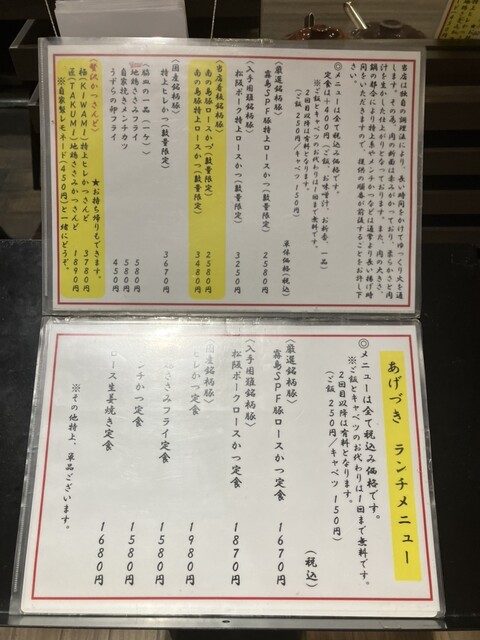 当店は、独自の調理法により、長い時間をかけてゆっくり火を通
します。そのためお肉の断面は赤みがかっており、柔らかさと肉
汁を生かした仕上がりとなっております。また、肉の大きさ、
類の部合により特上系やメンチかつなどは通常より長い揚げ時
間をいただきますので、提供の順番が前後することをお許し下
さい。
◎メニューは全て税込み価格です。
定食は+400円(ご飯、お味噌汁、お新香、一品)
※ご飯とキャベツのお代わりは1回まで無料です。
2回目以降は有料となります。
(ご飯 250円/キャベツ 150円)
単体価格(税込)
(厳選銘柄豚)
霧島SPF豚特上ロースかつ(数量限定) 2580円
(入手困難銘柄豚)
松阪ポーク特上ロースかつ(数量限定) 3250円
(当店看板銘柄豚)
南の島豚ロースかつ(数量限定) 2580円
南の島豚特上ロースかつ(数量限定) 3480円
(国産銘柄豚)
特上ヒレかつ(数量限定) 3670円
(脇皿の一品(一ケ))
地鶏ささみフライ 580円
自家挽きメンチかつ 580円
うずらの卵フライ 450円
(贅沢かつさんど) ★お持ち帰りもできます。
極(KIWAMI)特上ヒレかつさんど 3780円
匠(TAKUMI)地鶏ささみかつさんど 1890円
※自家製レモネード(450円)と一緒にどうぞ。
あげづき ランチメニュー
◎メニューは全て税込み価格です。
※ご飯とキャベツのお代わりは1回まで無料です。
2回目以降は有料となります。
(ご飯 250円/キャベツ 150円)
(税込)
(厳選銘柄豚)
霧島SPF豚ロースかつ定食 1670円
(入手困難銘柄豚)
松阪ポークロースかつ定食 1870円
国産銘柄豚)
ヒレかつ定食 1980円
ささみフライ定食 1580円
ンチかつ定食 1580円
ロース生姜焼き定食 1680円
※その他特上、単品ございます。